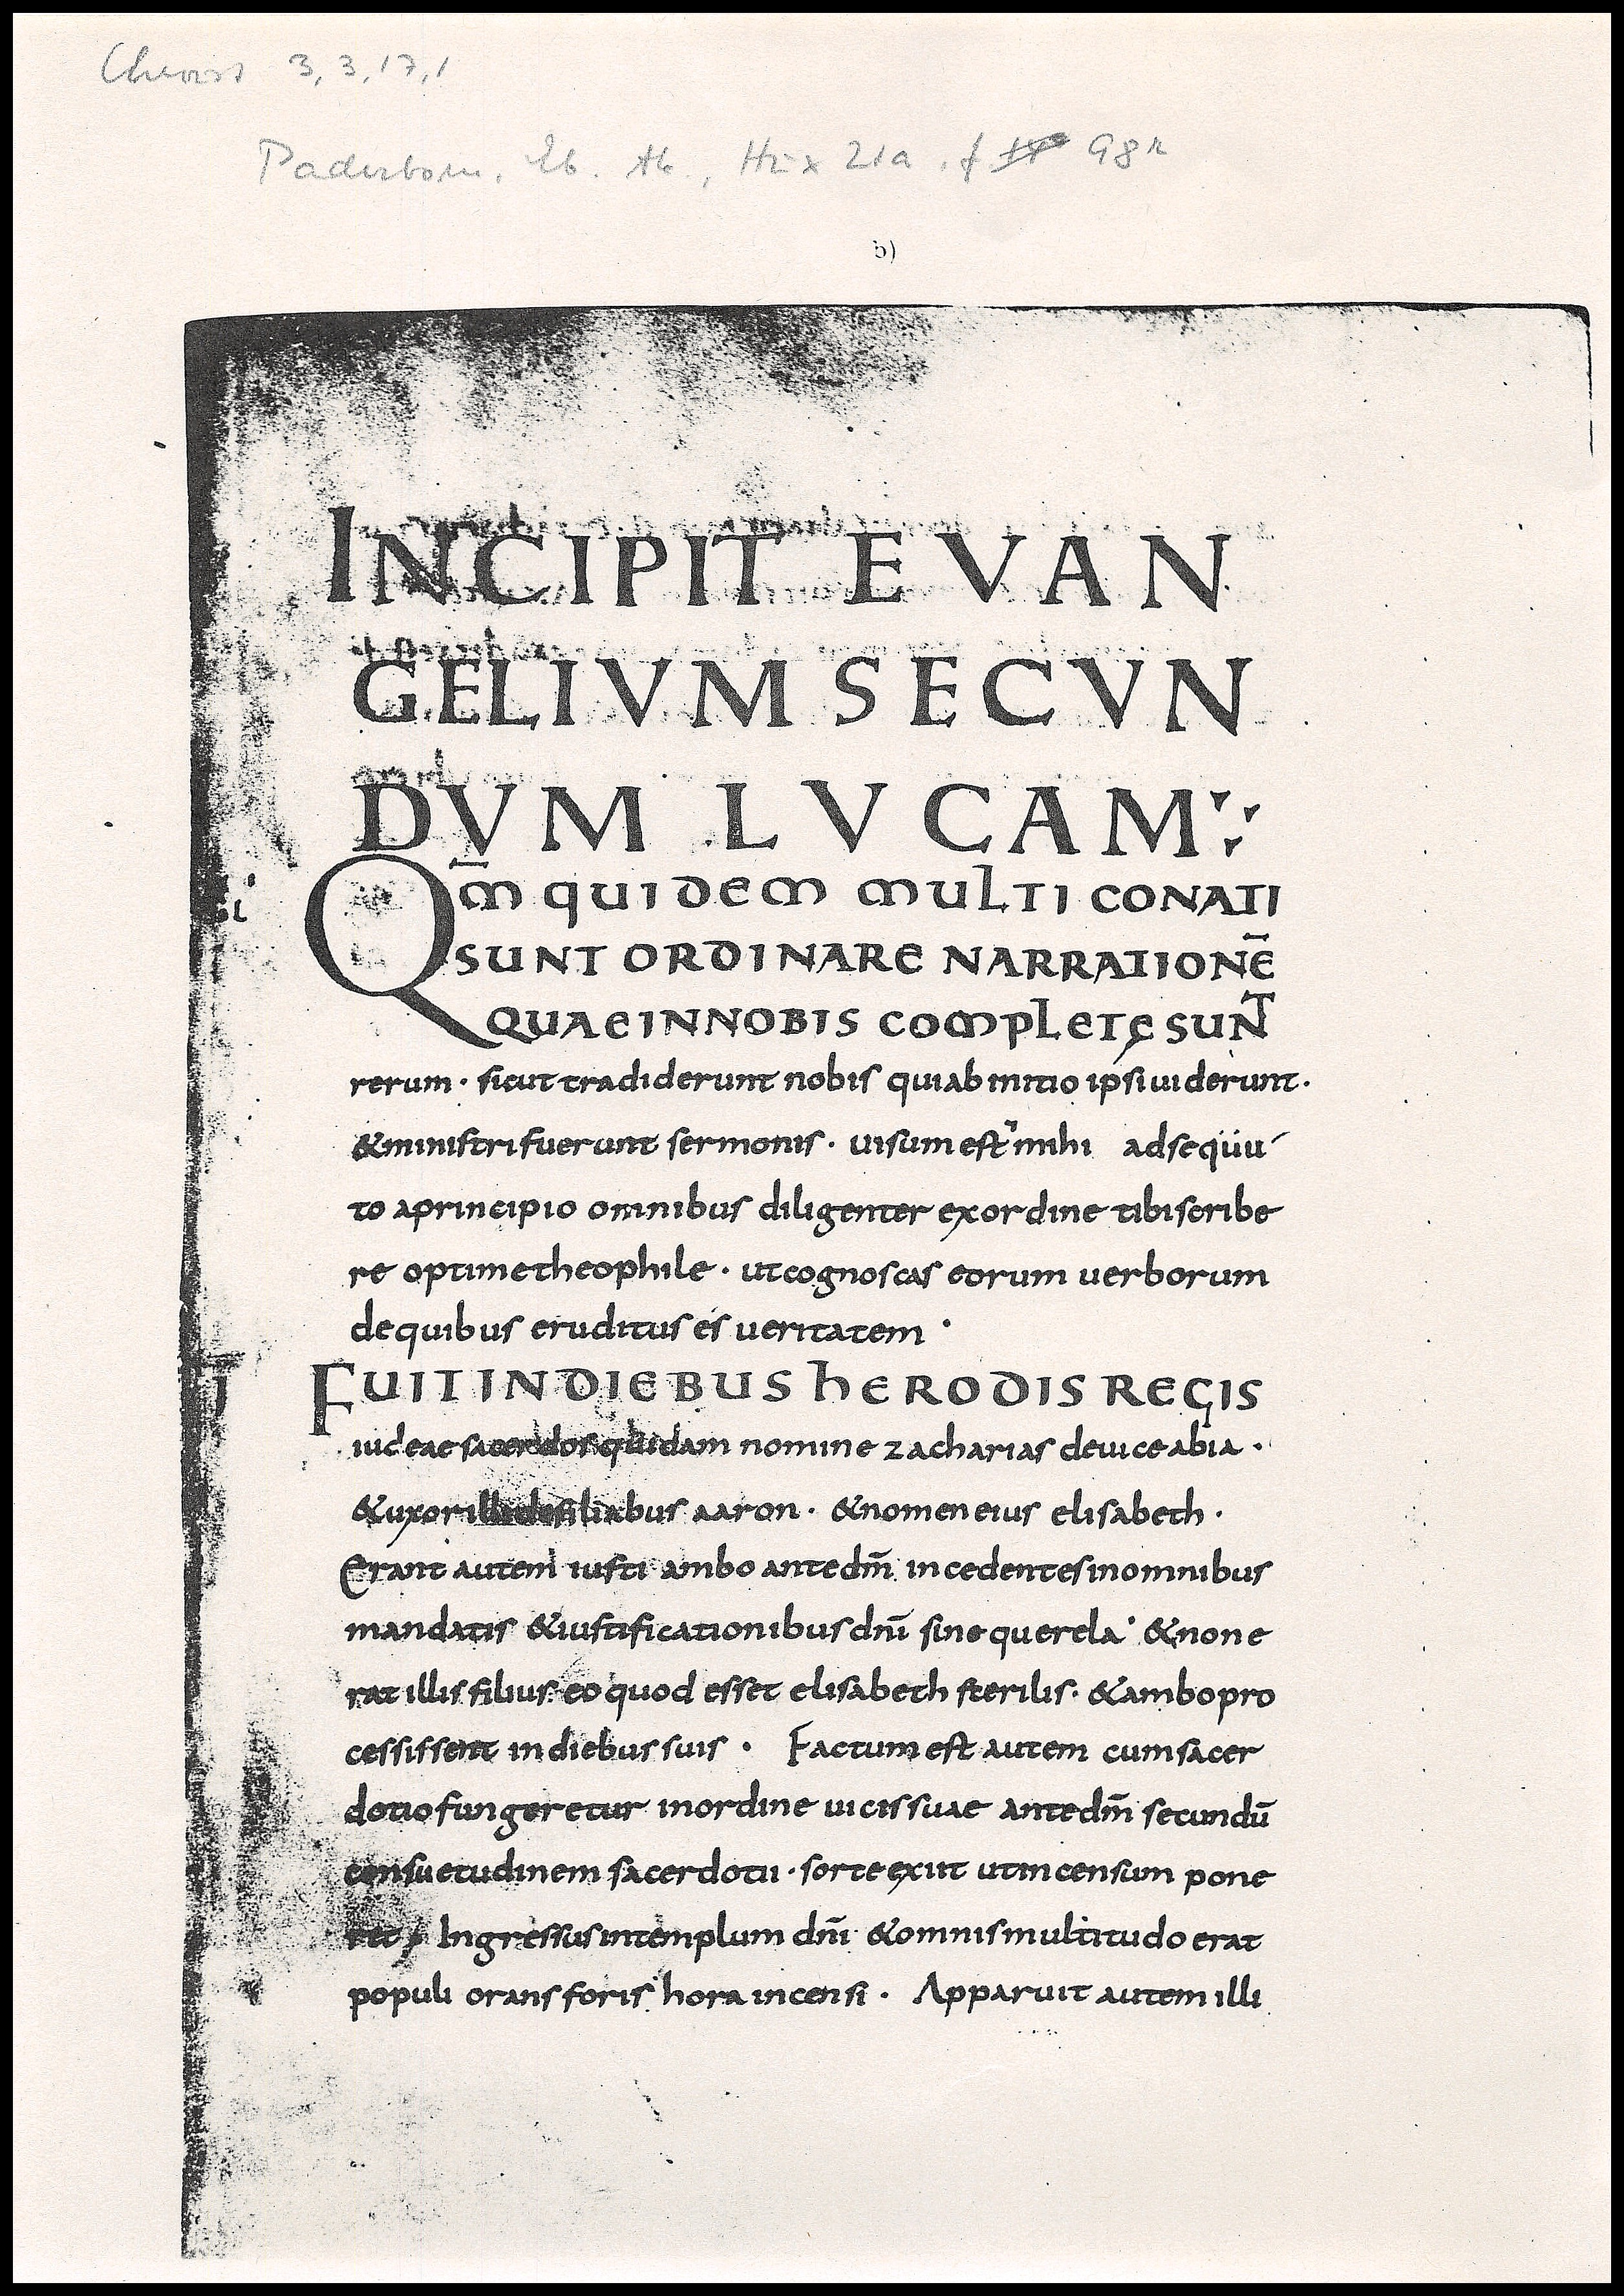 Chroust 3, 3, 17, 1
Paderborn, Eb. Ab., Hux 21a, f 98r
b)
INCIPIT EVAN
GELIVM SECVN
DVM LVCAM
Qm̄ quidem multi conati
sunt ordinare narrationē
quae in nobis complete sunt
rerum · sicut tradiderunt nobis qui ab initio ipsi uiderunt ·
& ministri fuerunt sermonis · uisum est mihi adsequu
to a principio omnibus diligenter ex ordine tibi scribe
re optime theophile · ut cognoscas eorum uerborum
de quibus eruditus es ueritatem ·
Fuit in diebus herodis regis
iudeae sacerdos quidam nomine zacharias de uice abia ·
& uxor illi de filiabus aaron · & nomen eius elisabeth ·
Erant autem iusti ambo ante dm̄ incedentes in omnibus
mandatis & iustificationibus dnī sine querela · & non e
rat illis filius eo quod esset elisabeth sterilis · & ambo pro
cessissent in diebus suis · Factum est autem cum sacer
dotio fungeretur in ordine uicis suae ante dm̄ secundū
consuetudinem sacerdotii · sorte exiit ut incensum pone
ret Ingressus in templum dnī & omnis multitudo erat
populi orans foris hora incensi · Apparuit autem illi